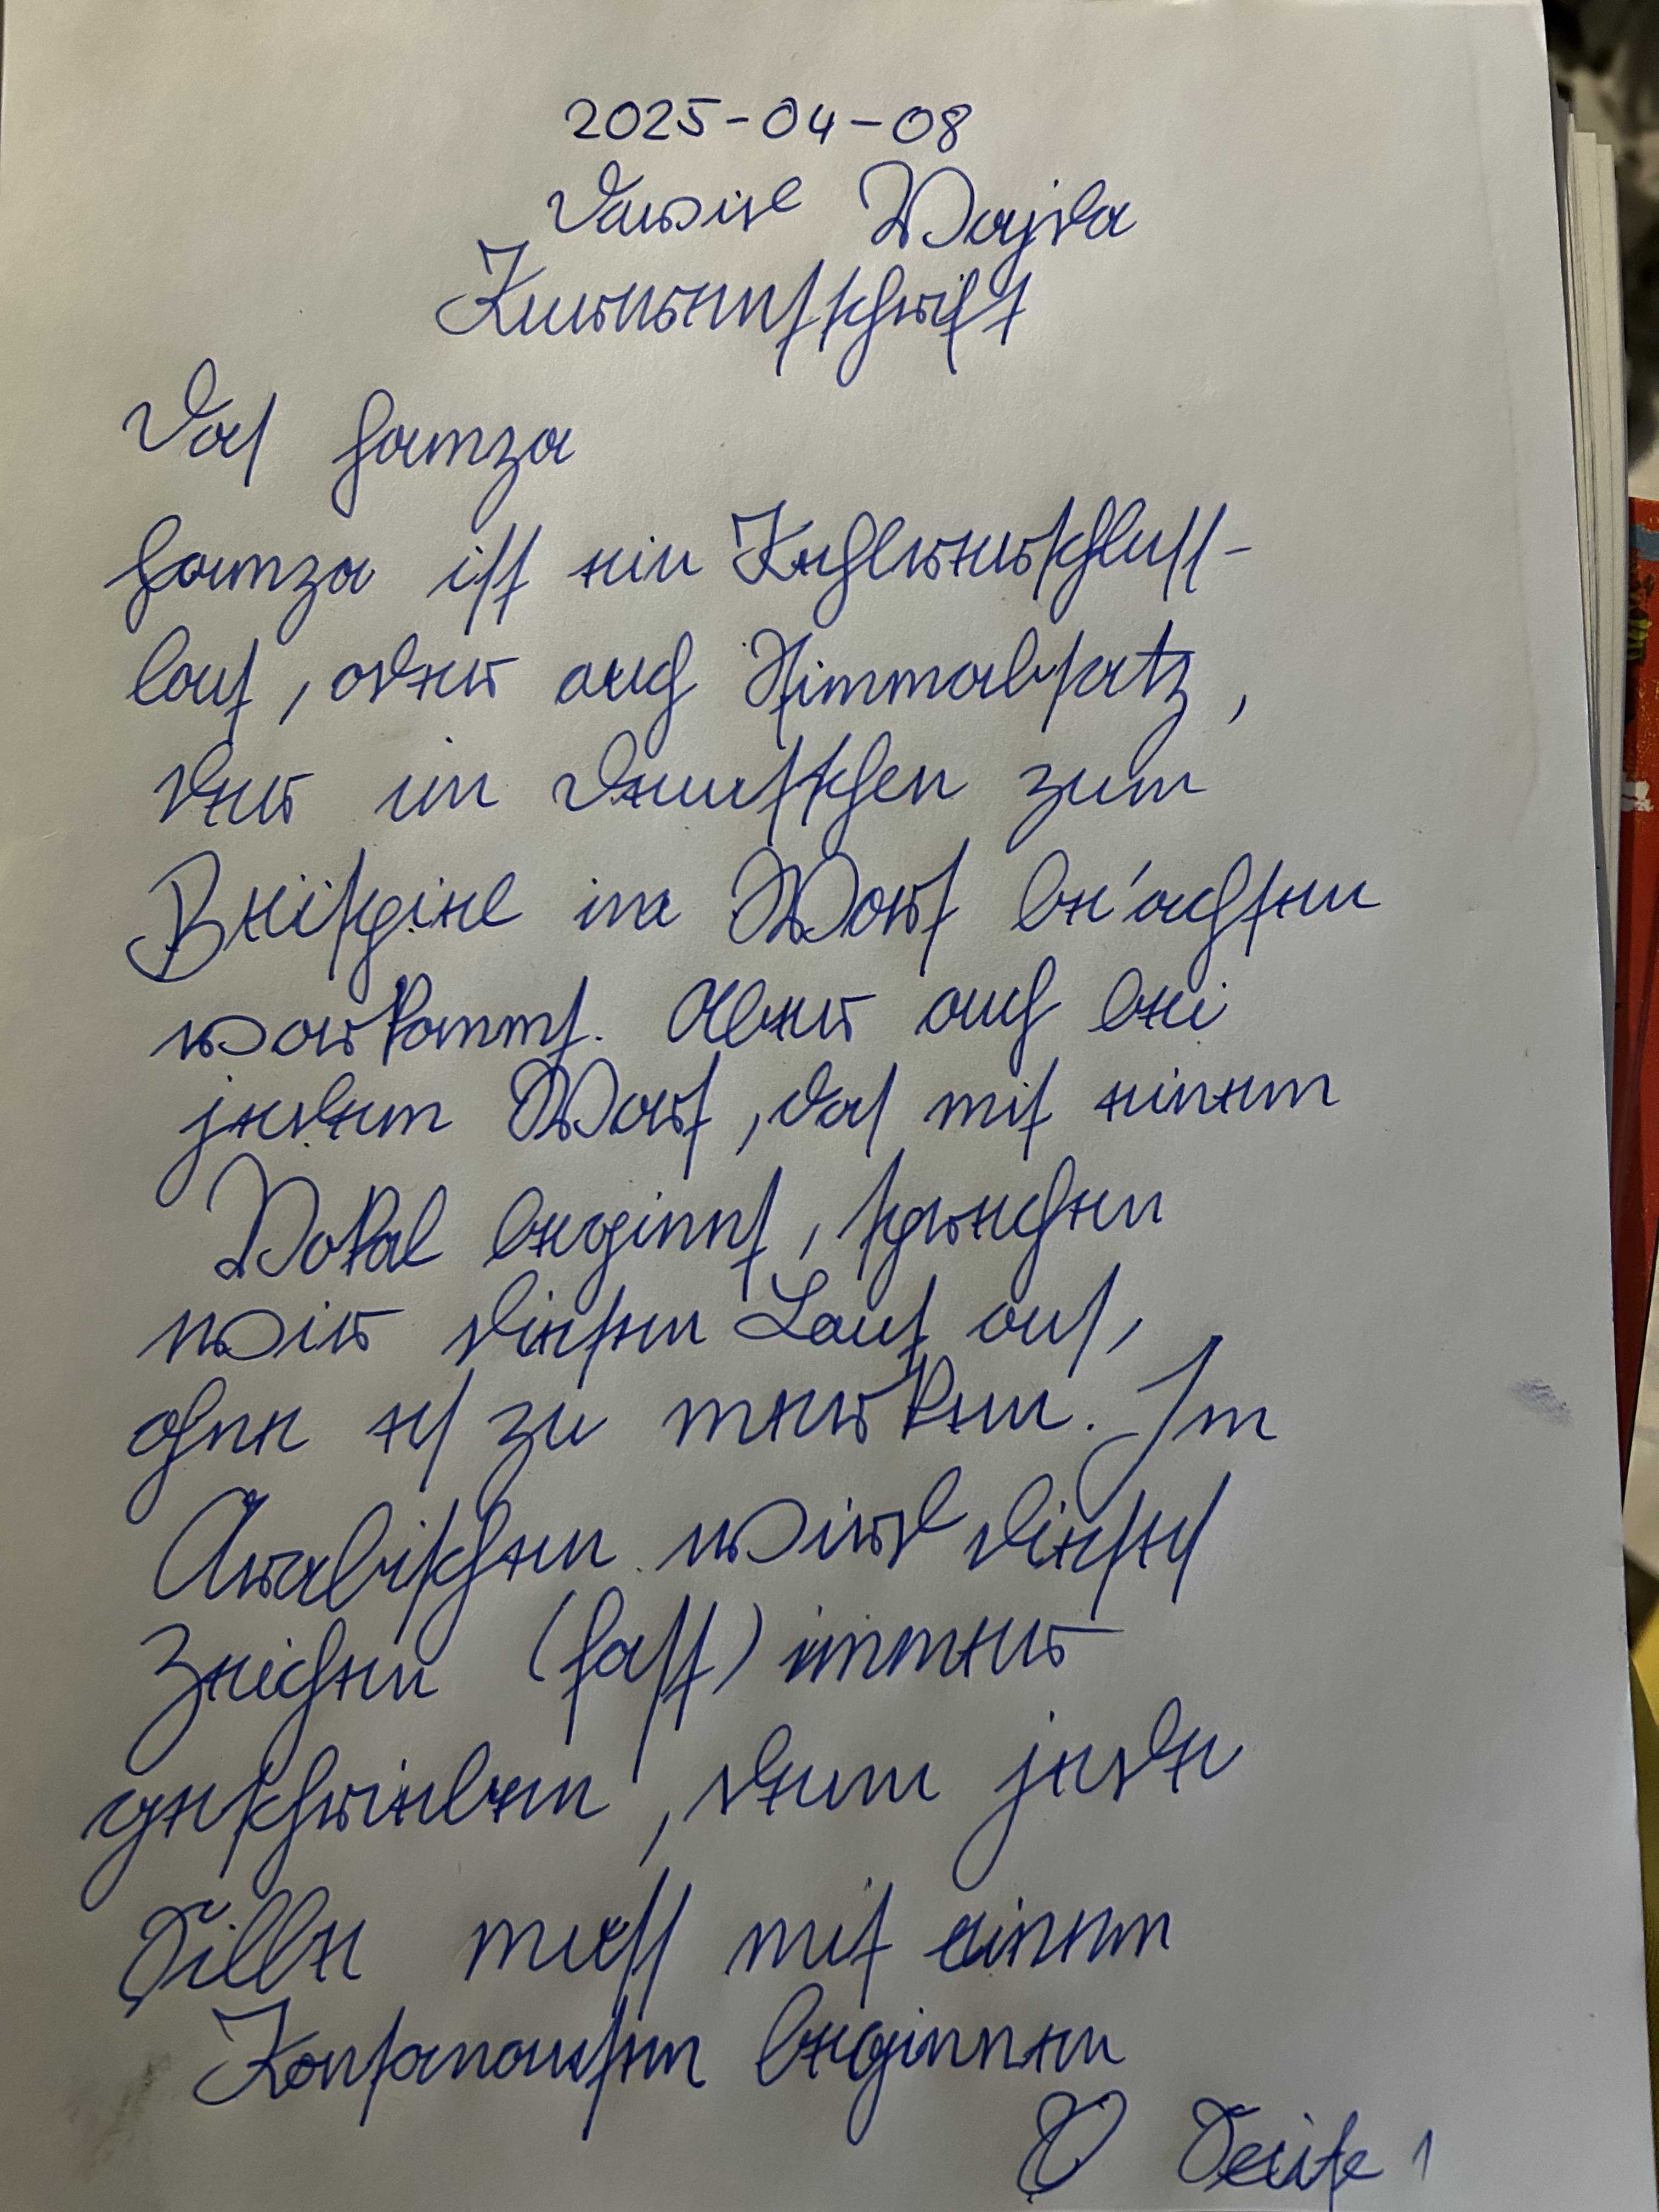 2025-04-08
David Wajda
Kurrentschrift
Das Hamza
Hamza ist ein Kehlverschluss-
laut, oder auch Stimmabsatz,
der im deutschen zum
Beispiel im Wort be'achten
vorkommt. Aber auch bei
jedem Wort, das mit einem
Vokal beginnt, sprechen
wir diesen Laut aus,
ohne es zu merken. Im
Arabischen wird dieses
Zeichen (fast) immer
geschrieben, denn jede
Silbe muss mit einem
Konsonanten beginnen
Seite 1